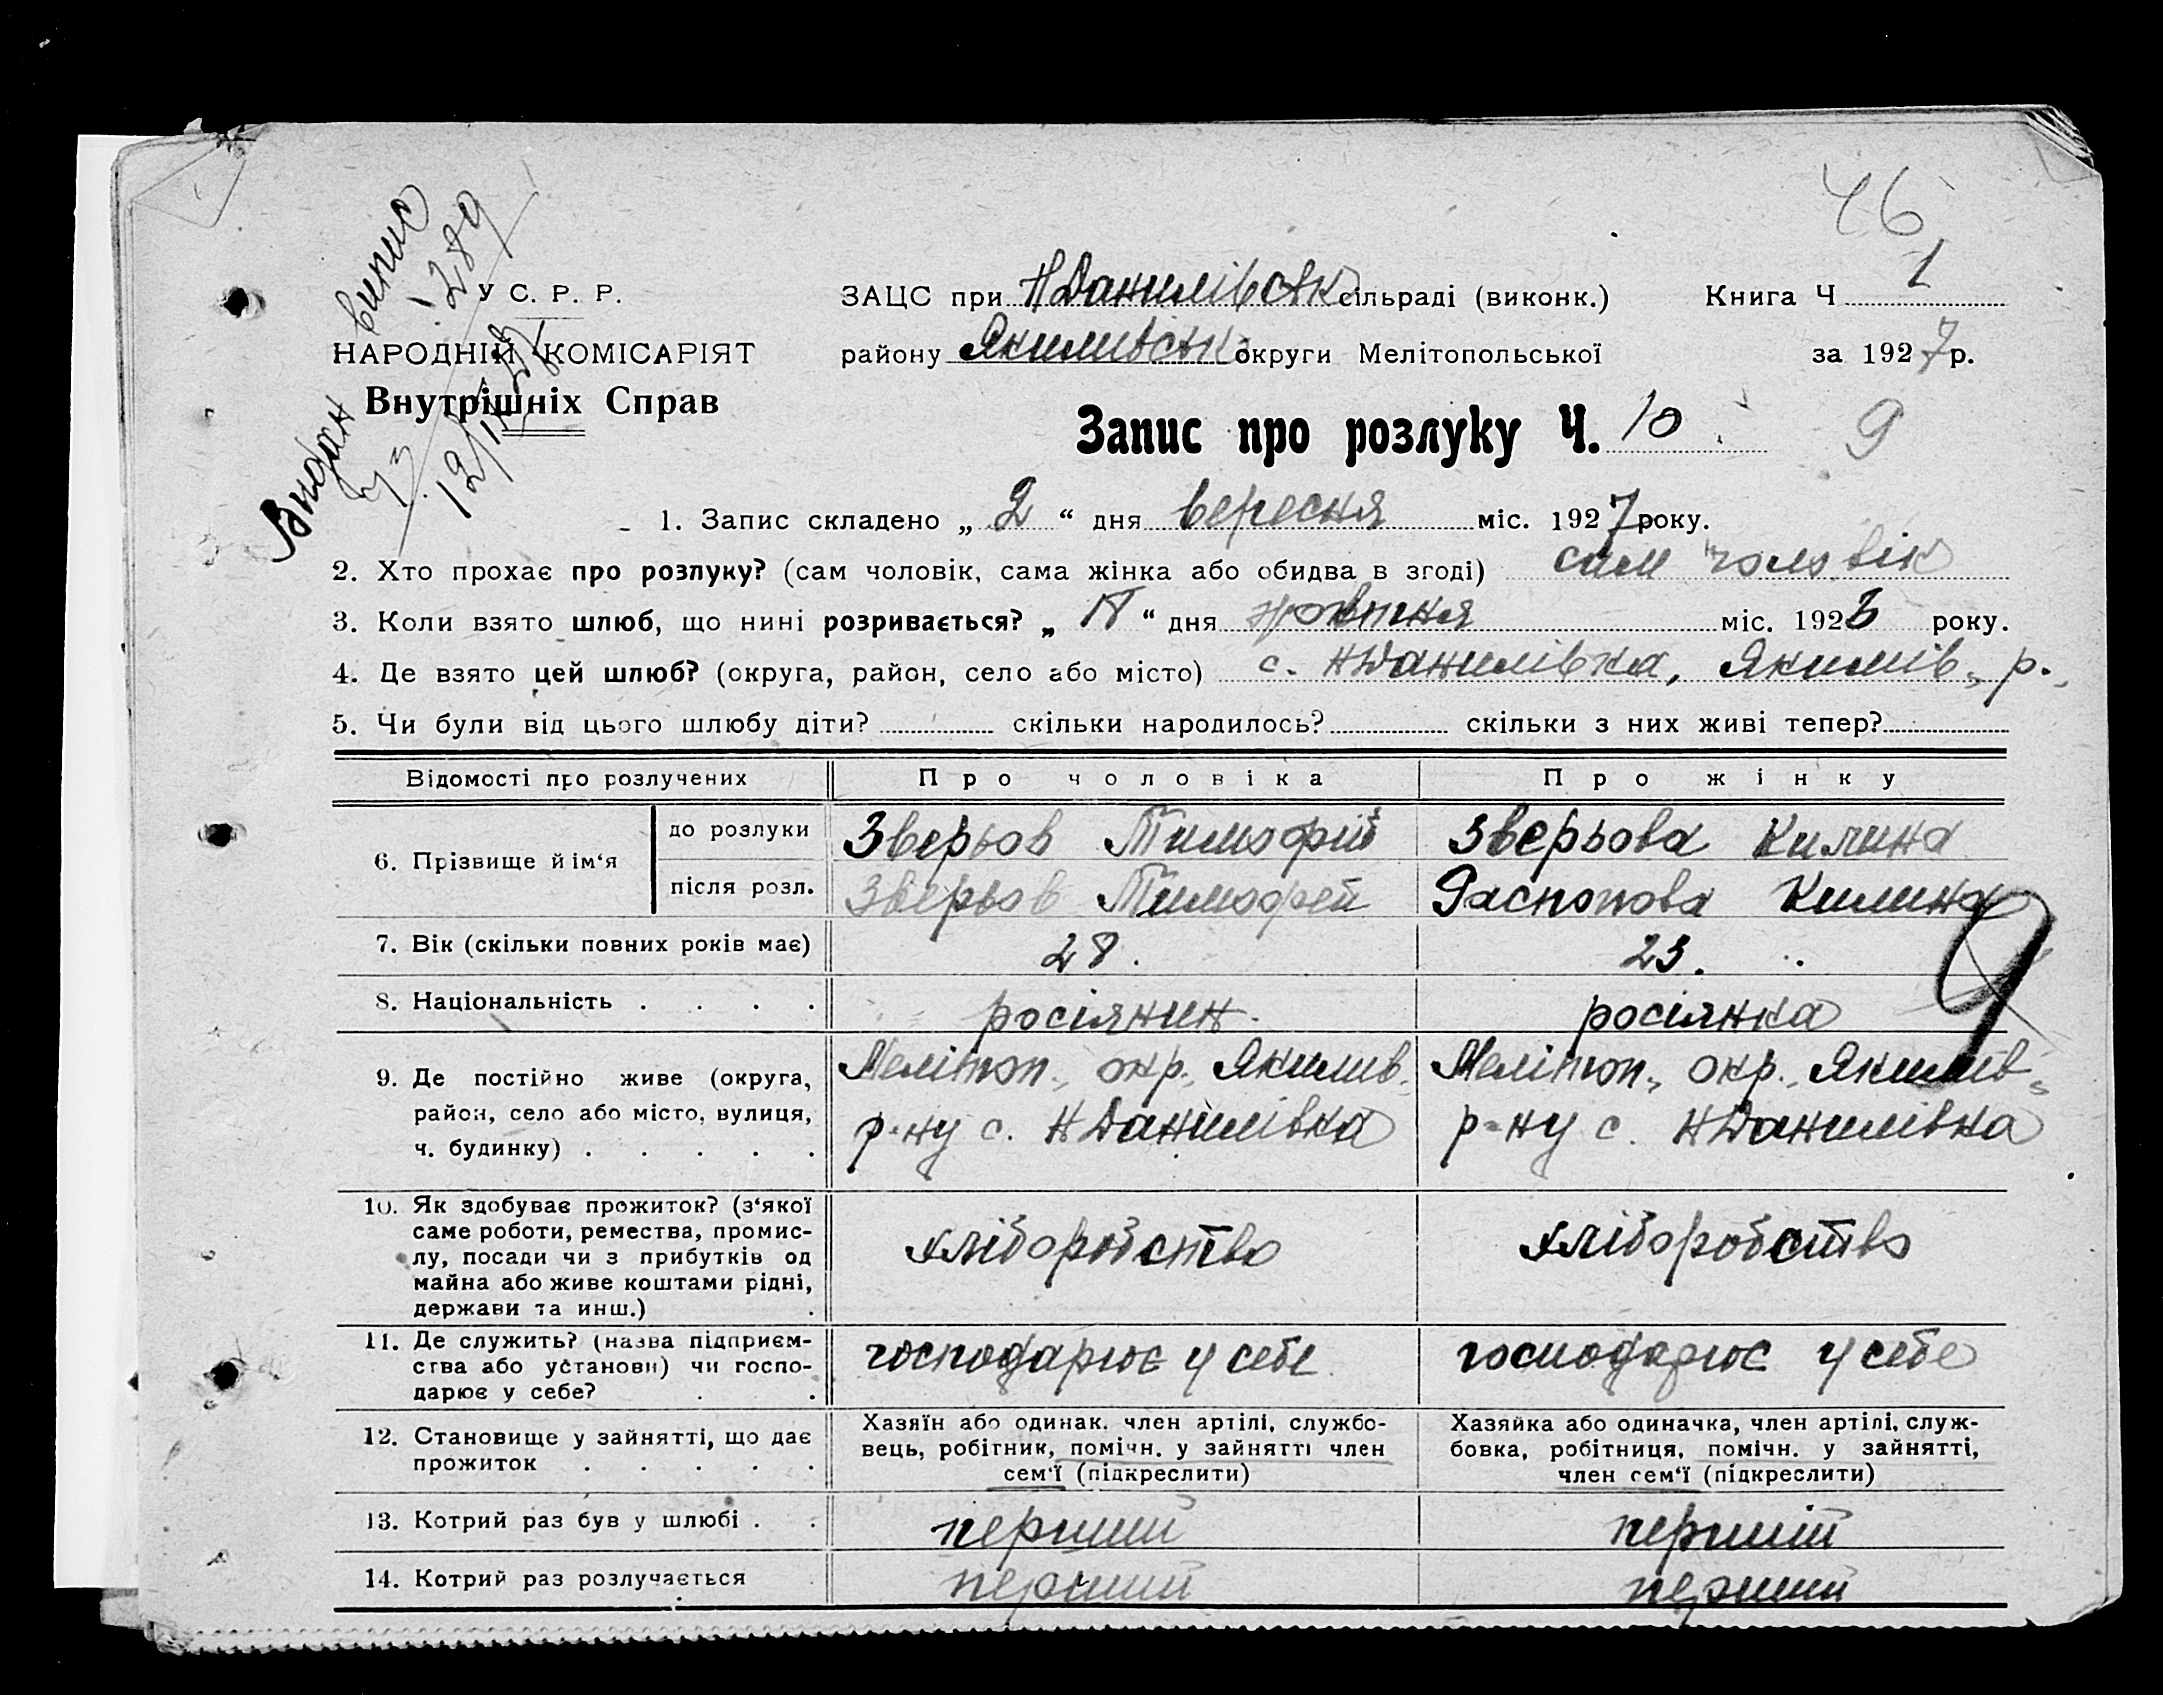 46
Видан випис
12/
У С. Р. Р.
НАРОДНІЙ КОМІСАРІЯТ
Внутрішніх Справ
ЗАЦС при НДанилівськ сільраді (виконк.) Книга Ч 1
району Якимівськ округи Мелітопольської за 1927 р.
Запис про розлуку Ч. 10. 9
1. Запис складено „ 2 “ дня вересня міс. 1927 року.
2. Хто прохає про розлуку? (сам чоловік, сама жінка або обидва в згоді) сам чоловік
3. Коли взято шлюб, що нині розривається? „ “ дня жовтня міс. 1923 року.
4. Де взято цей шлюб? (округа, район, село або місто) с. НДанилівка, Якимів„ р.
5. Чи були від цього шлюбу діти? скільки народилось? скільки з них живі тепер?
Відомості про розлучених Про чоловіка Про жінку
6. Прізвище й ім‘я до розлуки Зверьов Тимофій Зверьова Килина
після розл. Зверьов Тимофей Распопова Килина
9
7. Вік (скільки повних років має) 28. 23.
8. Національність . . . . росіянин. росіянка
9. Де постійно живе (округа, район, село або місто, вулиця, ч. будинку) . . . . . Мелітоп., окр., Якимив. Мелітоп., окр., Якимів„
р-ну с. НДанилівка р-ну с. НДанилівка
10. Як здобуває прожиток? (з‘якої
саме роботи, ремества, промис-
лу, посади чи з прибутків од
майна або живе коштами рідні,
держави та инш.) .
хліборобство хліборобство
11. Де служить? (назва підприєм-
ства або установи) чи госпо-
дарює у себе? . .
господарює у себе господарює у себе
12. Становище у зайнятті, що дає
прожиток . . . . .
Хазяїн або одинак. член артілі, службо-
вець, робітник, помічн. у зайнятті член
сем‘ї (підкреслити)
Хазяйка або одиначка, член артілі, служ-
бовка, робітниця, помічн. у зайнятті,
член сем‘ї (підкреслити)
13. Котрий раз був у шлюбі . . перший перший
14. Котрий раз розлучається перший перший